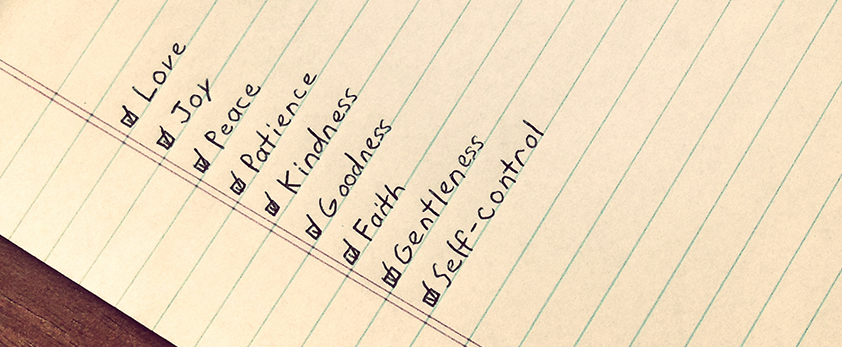 Love
Joy
Peace
Patience
Kindness
Goodness
Faith
Gentleness
Self-control